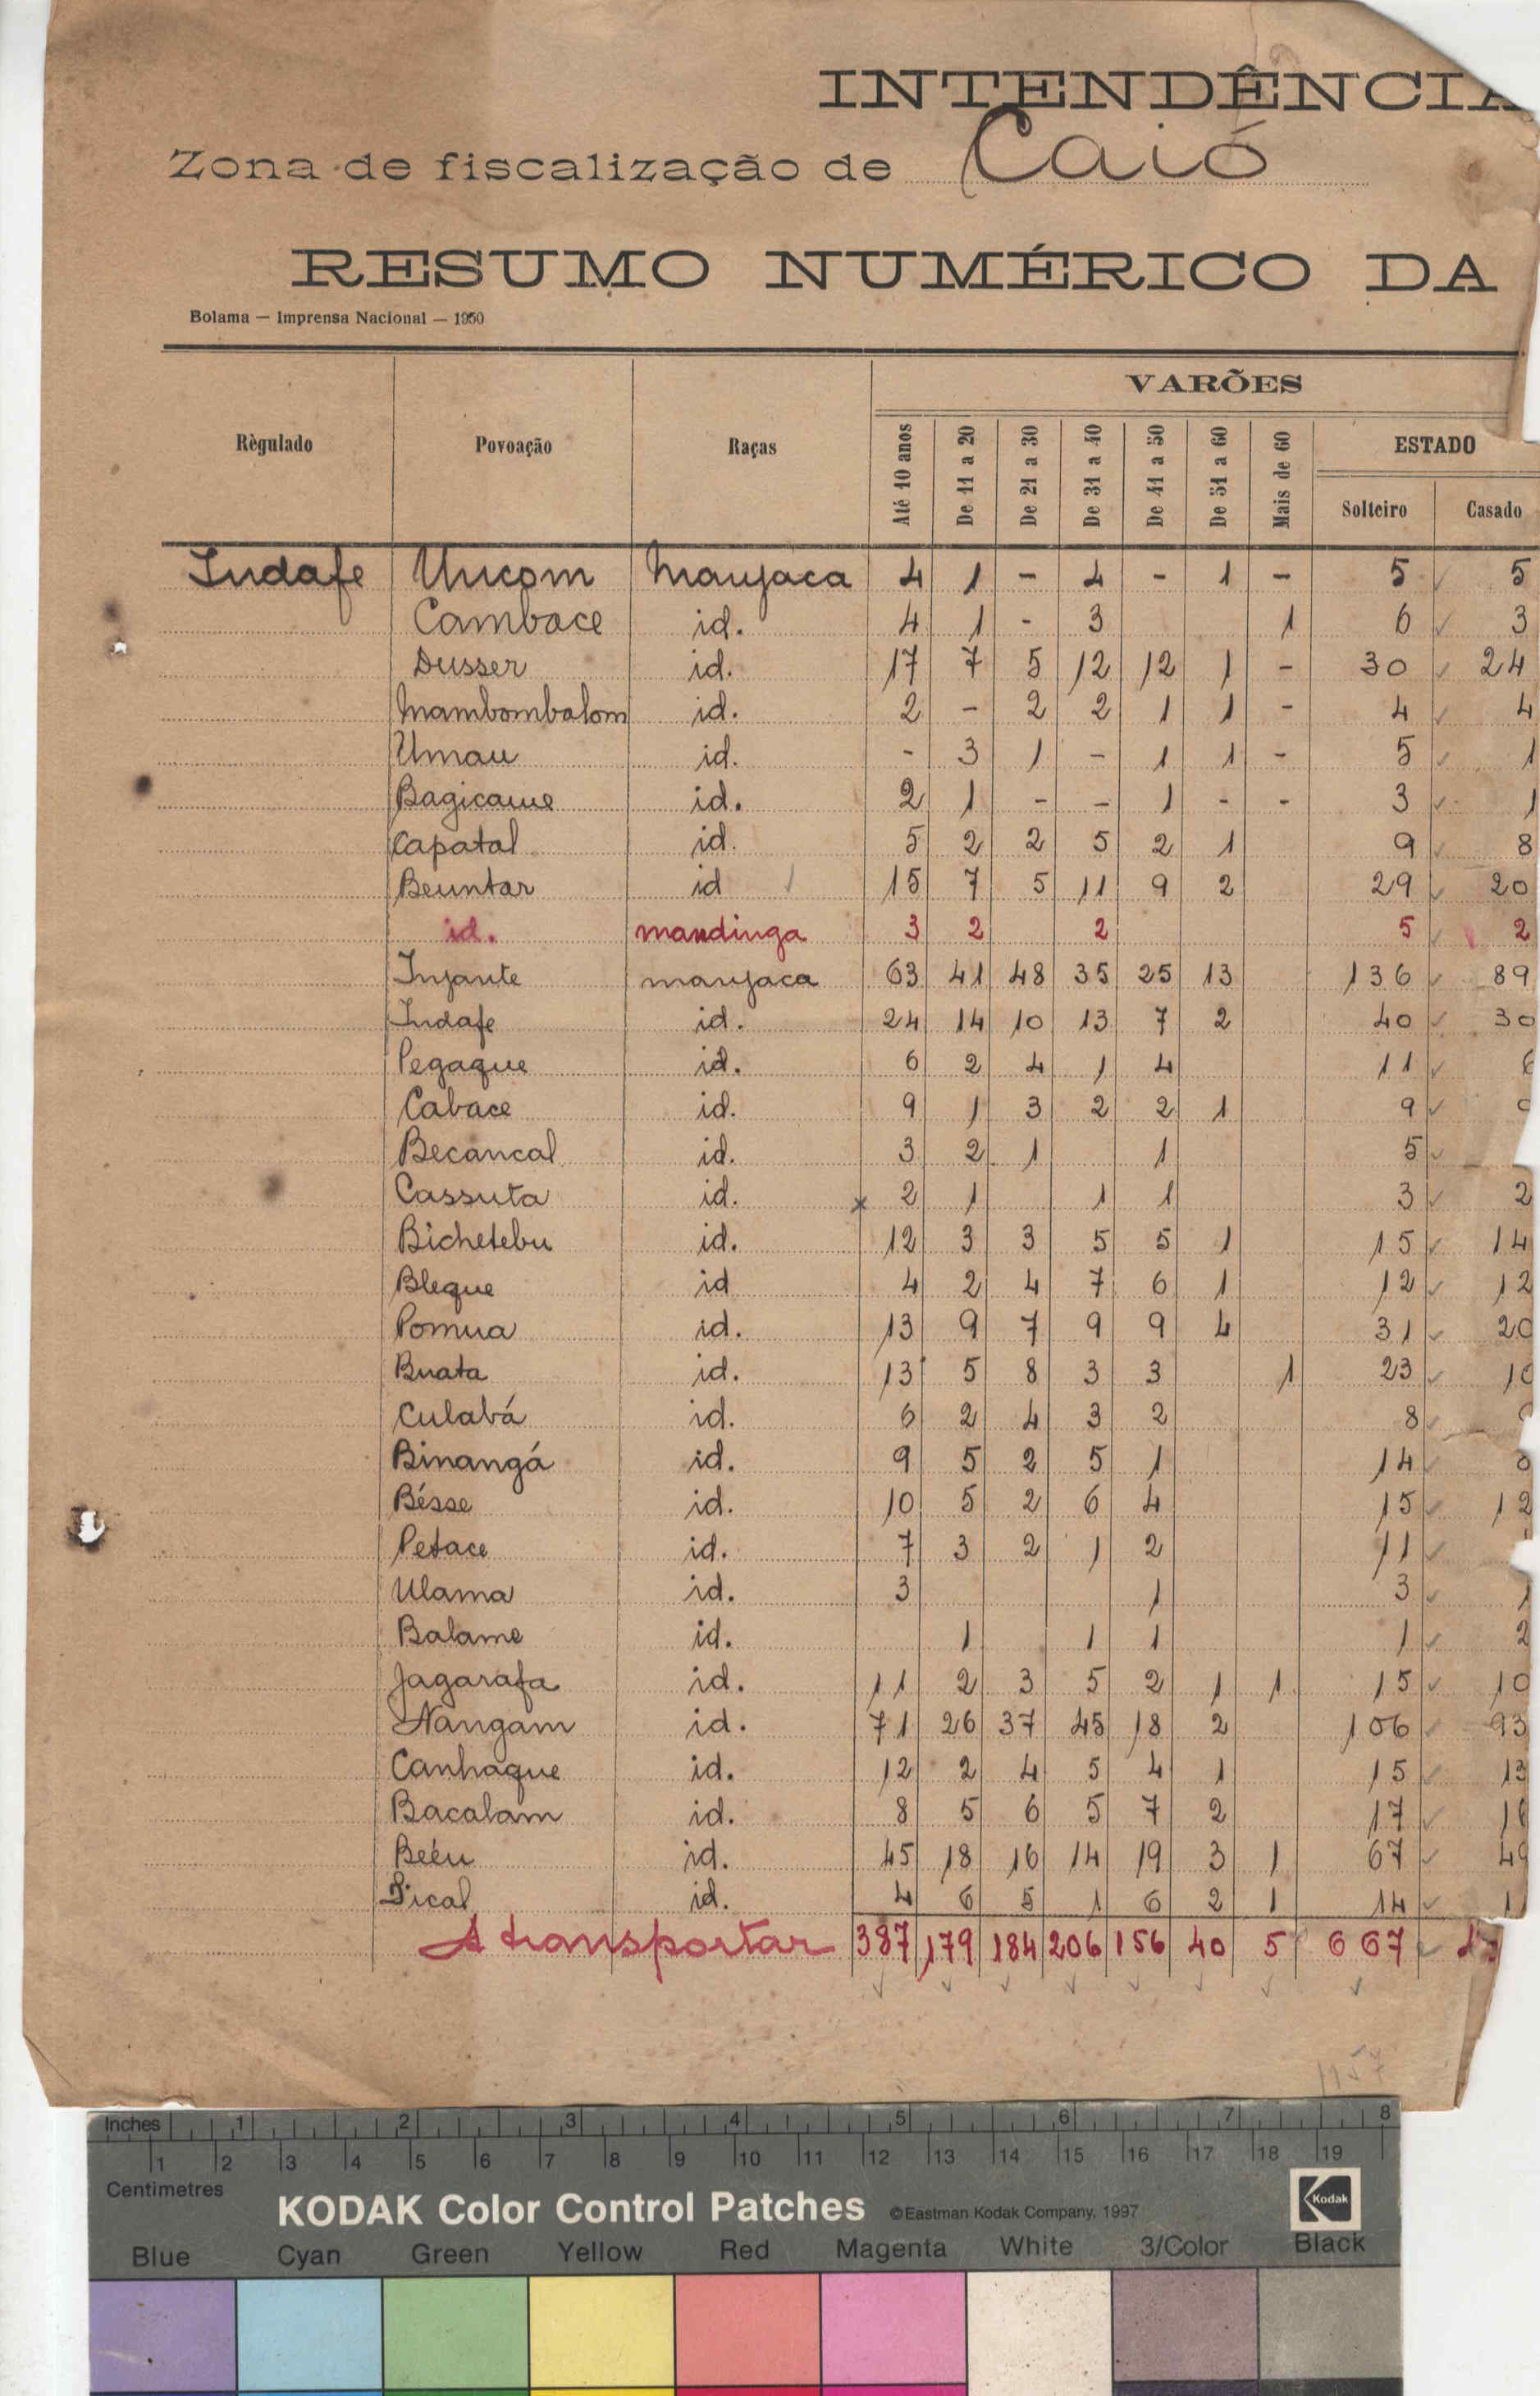 INTENDÊNCIA
Zona de fiscalização de Caió
RESUMO NUMÉRICO DA
Bolama — Imprensa Nacional — 1950
VARÕES
Règulado Povoação Raças Até 10 anos De 11 a 20 De 21 a 30 De 31 a 40 De 41 a 50 De 51 a 60 Mais de 60 ESTADO
Solteiro Casado
Indafe Uncom manjaca 4 1 - 4 - 1 - 5 5
Cambace id. 4 1 - 3 1 6 3
Dusser id. 17 7 5 12 12 1 - 30 24
Mambombalom id. 2 - 2 2 1 1 - 4 4
Umau id. - 3 1 - 1 1 - 5 1
Bagicame id. 2 1 - - 1 - - 3 1
Capatal id. 5 2 2 5 2 1 9 8
Beuntar id 15 7 5 11 9 2 29 20
id. mandinga 3 2 2 5 2
Injante manjaca 63 41 48 35 25 13 136 89
Indafe id. 24 14 10 13 7 2 40 30
Pegaque id. 6 2 4 1 4 11 6
Cabace id. 9 1 3 2 2 1 9
Becancal id. 3 2 1 1 5
Cassuta id. x 2 1 1 1 3 2
Bichetebu id. 12 3 3 5 5 1 15 14
Bleque id 4 2 4 7 6 1 12 12
Pomua id. 13 9 7 9 9 4 31 20
Buata id. 13 5 8 3 3 1 23 10
Culabá id. 6 2 4 3 2 8
Binangá id. 9 5 2 5 1 14 8
Bésse id. 10 5 2 6 4 15 12
Petace id. 7 3 2 1 2 11
Ulama id. 3 1 3 1
Balame id. 1 1 1 1 2
Jagarafa id. 11 2 3 5 2 1 1 15 10
Nangam id. 71 26 37 45 18 2 106 93
Canhaque id. 12 2 4 5 4 1 15 13
Bacalam id. 8 5 6 5 7 2 17 16
Beéu id. 45 18 16 14 19 3 1 67 49
Pical id. 4 6 5 1 6 2 1 14
A transportar 387 179 184 206 156 40 5 667
1957
Inches 1 2 3 4 5 6 7 8
1 2 3 4 5 6 7 8 9 10 11 12 13 14 15 16 17 18 19
Centimetres
KODAK Color Control Patches ©Eastman Kodak Company, 1997 Kodak
Blue Cyan Green Yellow Red Magenta White 3/Color Black